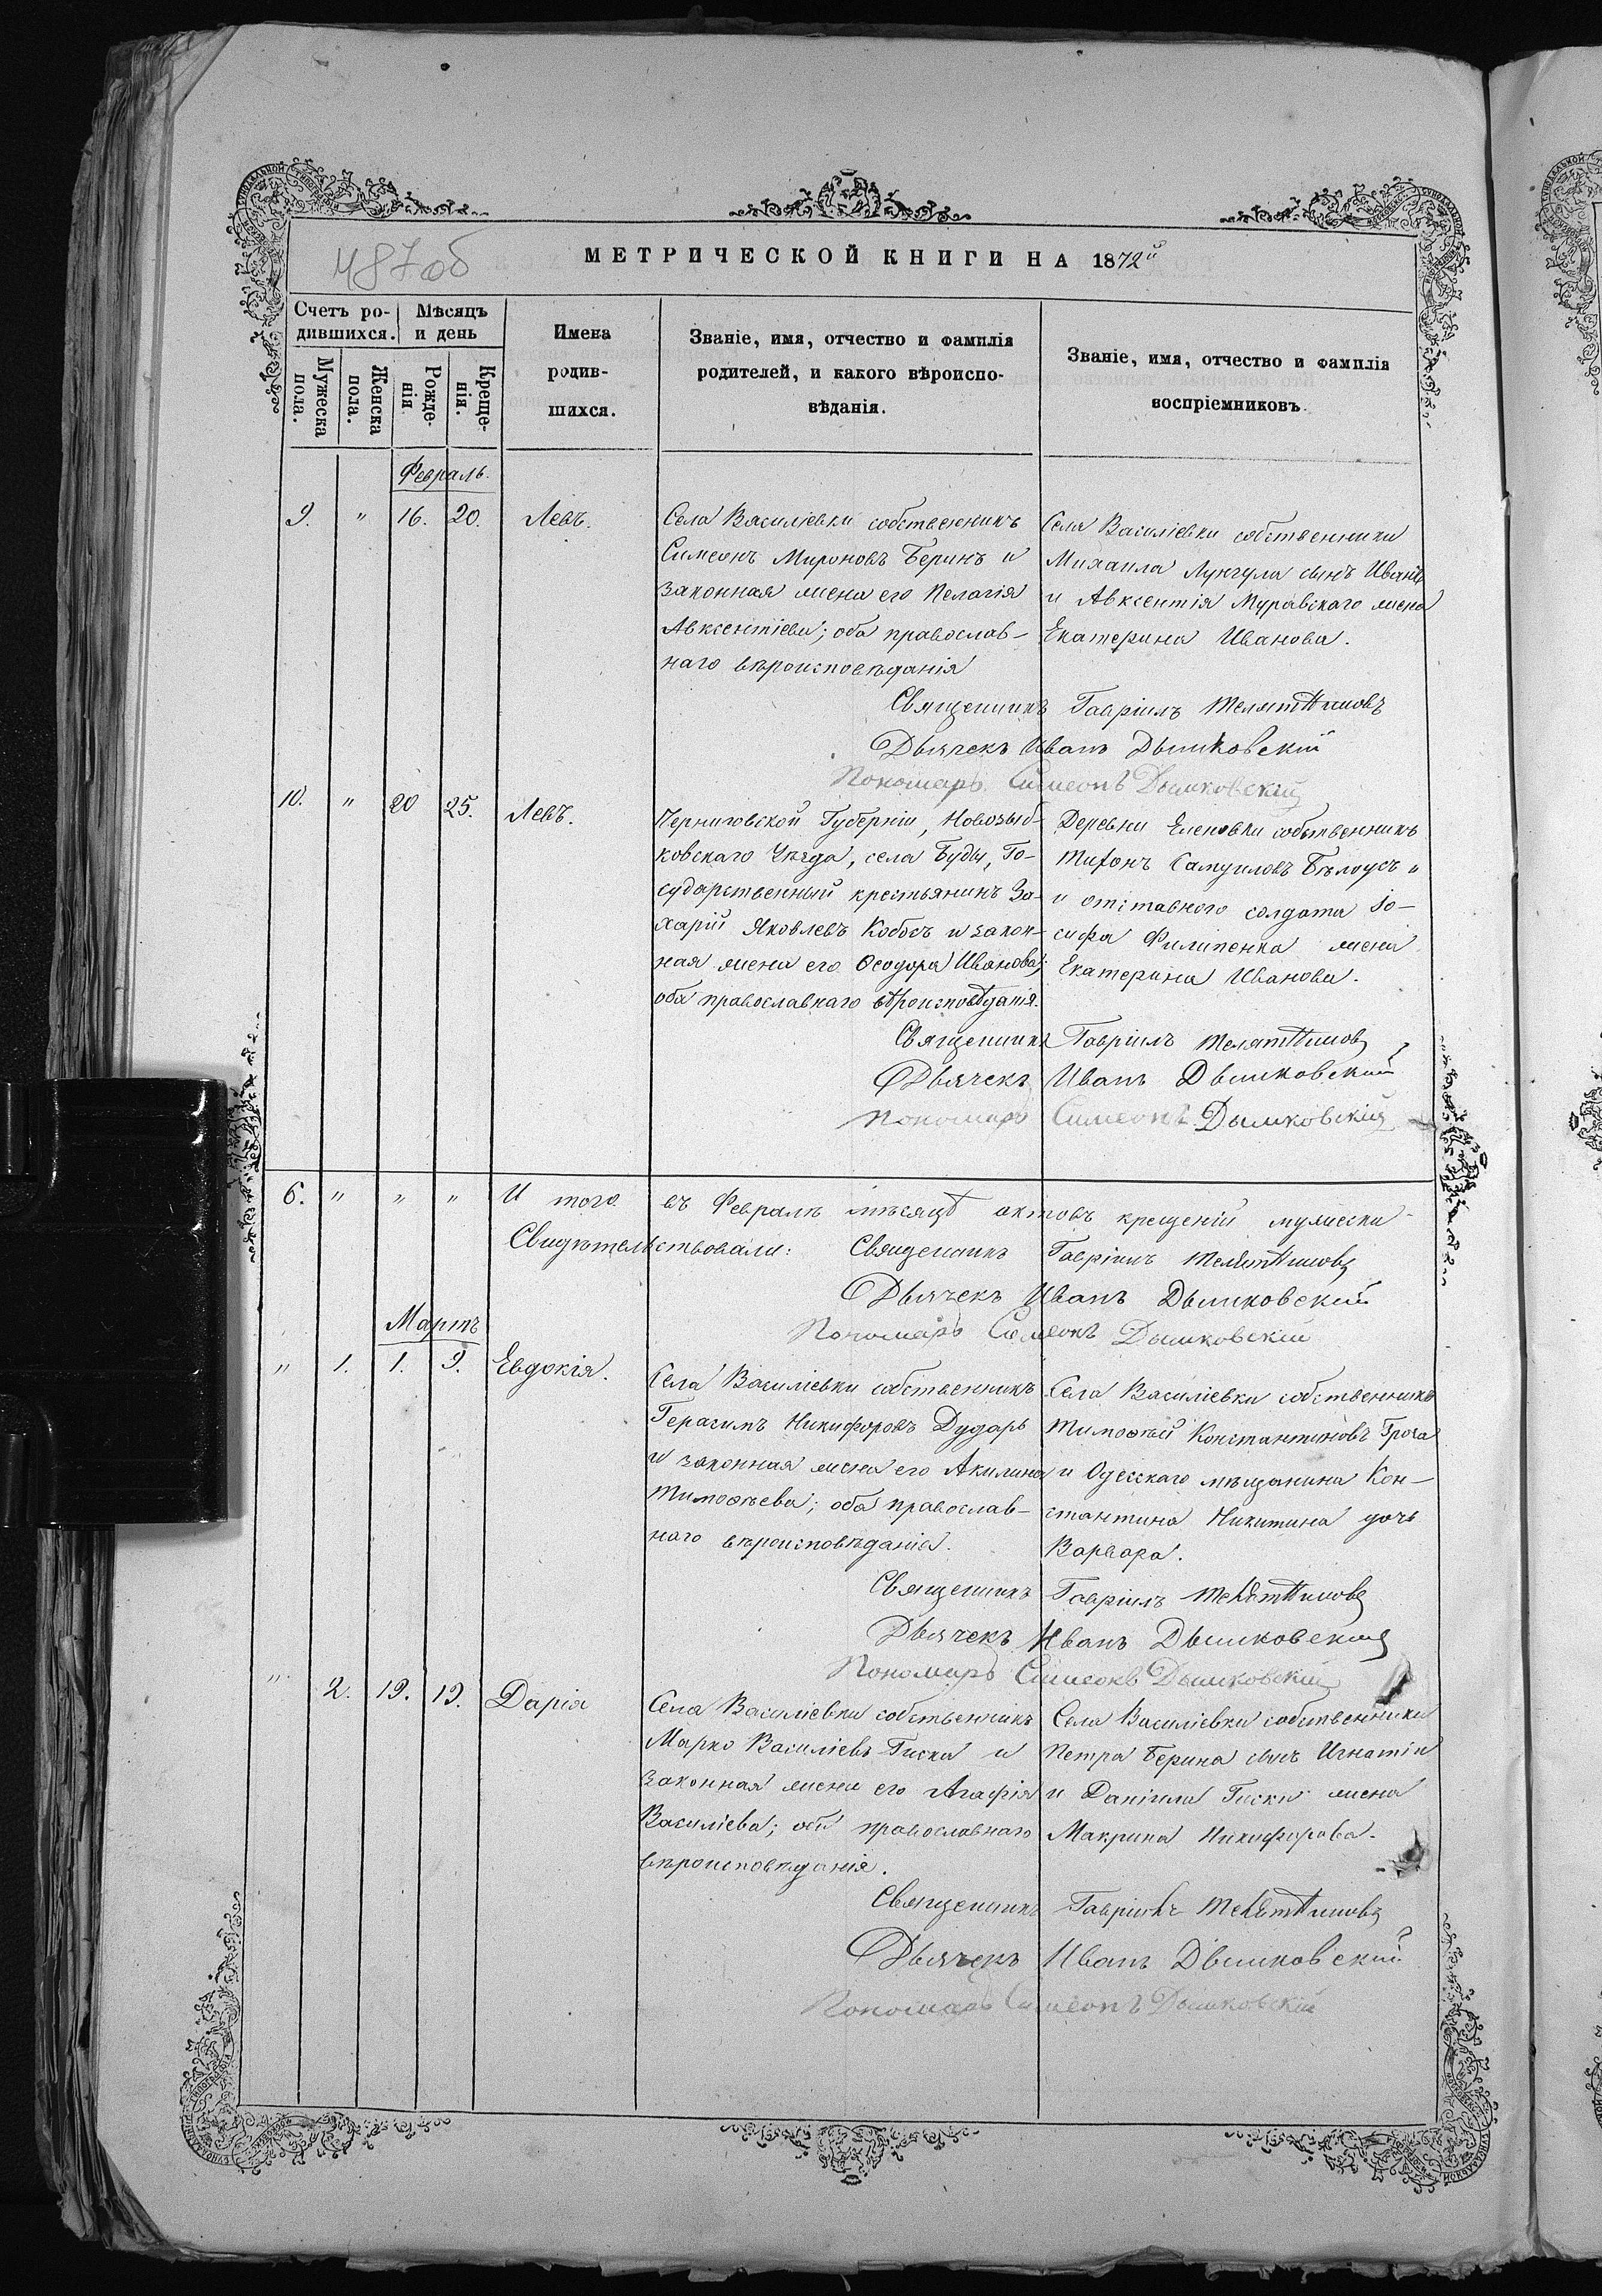 487об
МЕТРИЧЕСКОЙ КНИГИ НА 1872й
Счетъ ро-
дившихся.
Мѣсяцъ
и день
Имена
родив-
шихся.
Званіе, имя, отчество и фамилія
родителей, и какого вѣроиспо-
вѣданія.
Званіе, имя, отчество и фамилія
воспріемниковъ.
Мужеска
пола.
Женска
пола.
Рожде-
нія
Креще-
нія.
Февраль.
9. " 16. 20. Левъ.
Села Василіевки собственникъ
Симеонъ Мироновъ Беринъ и
законная жена его Пелагія
Авксентіева; оба православ-
наго вѣроисповѣданія
Села Василіевки собственника
Михаила Лунгула сынъ Иванъ
и Авксентія Муравскаго жена
Екатерина Иванова.
Священникъ Гавріилъ
Дьячекъ Иванъ Дымковскій
Пономарь Симеонъ Дымковскій
10. " 20 25. Левъ.
Черниговской Губерніи, Новозыб-
ковскаго Уѣзда, села Буды, Го-
сударственный крестьянинъ За-
харій Яковлевъ Кобосъ и закон-
ная жена его Ѳеодора Иванова;
оба православнаго вѣроисповѣданія.
Деревни Еленовки собственникъ
Тифонъ Самуиловъ Бѣлоусъ "
и отставного солдата Іо-
сифа Филипенка жена
Екатерина Иванова.
Священникъ Гавріилъ
Дьячекъ Иванъ Дымковскій
Пономарь Симеонъ Дымковскій
6. " " " И того въ Февралѣ мѣсяцѣ актовъ крещеній мужеска
Свидѣтельствовали: Священникъ Гавріилъ
Дьячекъ Иванъ Дымковскій
Пономарь Симеонъ Дымковскій
Мартъ
" 1. 1. 9. Евдокія.
Села Василіевки собственникъ
Герасимъ Никифоровъ Дударь
и законная жена его Акилина
Тимоѳѣева; оба православ-
наго вѣроисповѣданія.
Села Василіевки собственникъ
Тимоѳей Константиновъ
и Одесскаго мѣщанина Кон-
стантина Никитина дочь
Варвара.
Священникъ Гавріилъ
Дьячекъ Иванъ Дымковскій
Пономарь Симеонъ Дымковскій
" 2. 19. 19. Дарія
Села Василіевки собственникъ
Марко Василіевъ Гиска и
законная жена его Агафія
Василіева; оба православнаго
вѣроисповѣданія.
Села Василіевки собственника
Петра Берина сынъ Игнатій
и Даніила Гиски жена
Макрина Никифорова.
Священникъ Гавріилъ
Дьячекъ Иванъ Дымковскій
Пономарь Симеонъ Дымковскій